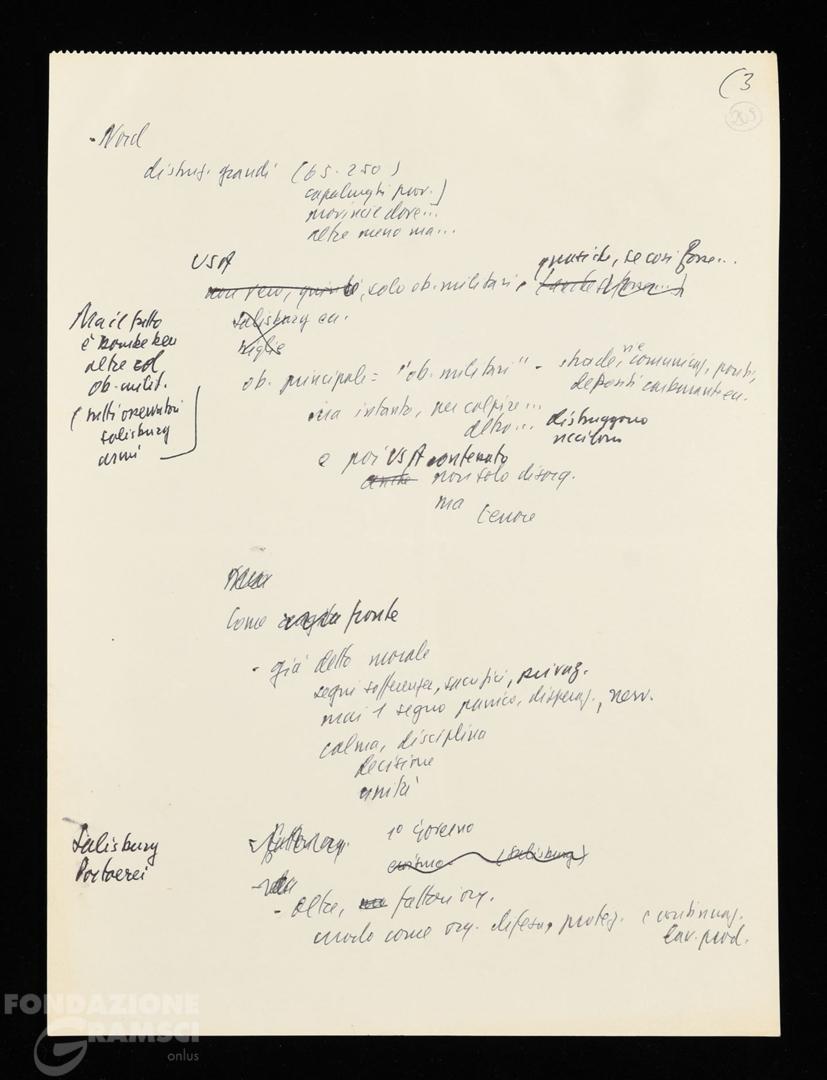 (3
205
- Nord
distruz. grandi (65-250)
capoluoghi prov.)
provincie dove...
altre meno ma...
USA
giustif., se così fosse...
non vero, , solo ob. militari.
Salisbury ecc.
Ma il fatto
è bombe ben
altre col
ob. milit.
(tutti osservatori
Salisbury
armi
ob. principale = "ob. militari" - strade, vie comunicaz., ponti,
depositi carburanti ecc.
ma intanto, per colpire...
altro... distruggono
uccidono
e poi USA contavano
anche non solo disorg.
ma
terrore
Come fronte
- già detto morale
segni sofferenza, sacrifici, privaz.
mai 1 segno panico, disperaz., nerv.
calma, disciplina
decisione
unità
Salisbury
Portaerei
1º Governo
(Salisbury)
- altre, ma fattori org.
modo come org. difesa, protez. e continuaz.
lav. prod.
FONDAZIONE
GRAMSCI
onlus